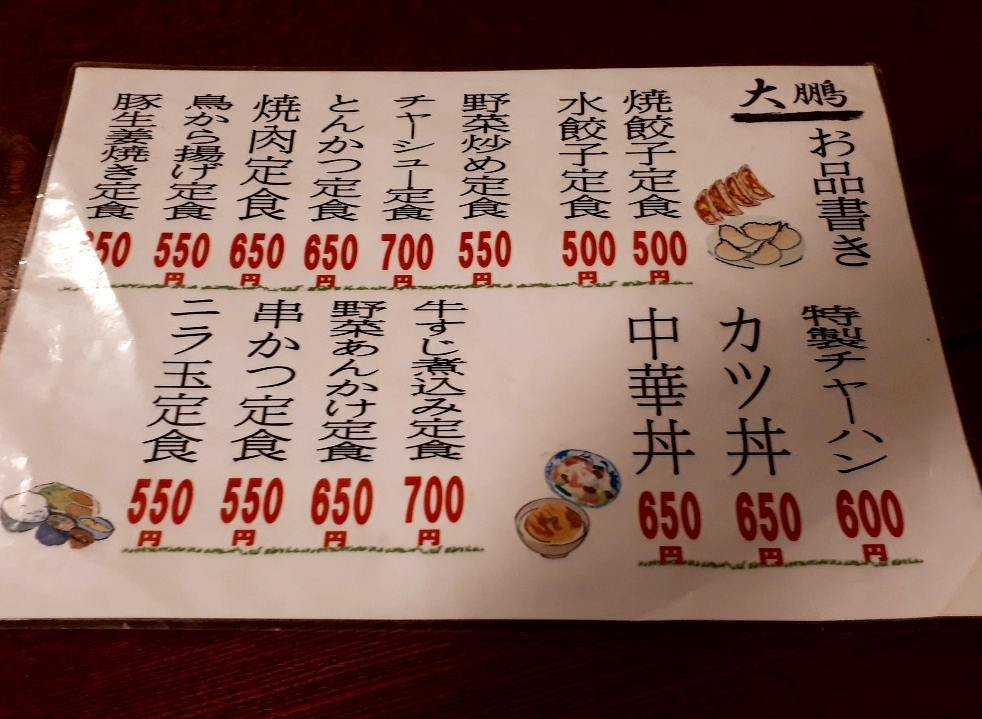 大鵬
お品書き
焼餃子定食
500円
水餃子定食
500円
野菜炒め定食
550円
チャーシュー定食
700円
とんかつ定食
650円
焼肉定食
650円
鳥から揚げ定食
550円
豚生姜焼き定食
特製チャーハン
600円
カツ丼
650円
中華丼
650円
牛すじ煮込み定食
700円
野菜あんかけ定食
650円
串かつ定食
550円
ニラ玉定食
550円